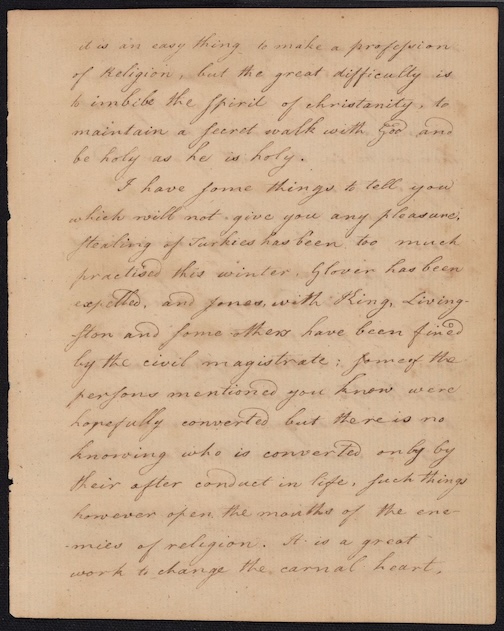 it is an easy thing to make a profession
of Religion, but the great difficulty is
to imbibe the spirit of christanity, to
maintain a secret walk with God and
be holy as he is holy.
I have some things to tell you
which will not give you any pleasure,
stealing of Turkies has been too much
practised this winter, Glover has been
expelled, and Jones, with King, Living-
ston and some others have been fined
by the civil magistrate: some of the
persons mentioned you know were
hopefully converted but there is no
knowing who is converted only by
their after conduct in life, such things
however open the mouths of the ene-
-mies of religion. It is a great
work to change the carnal heart,